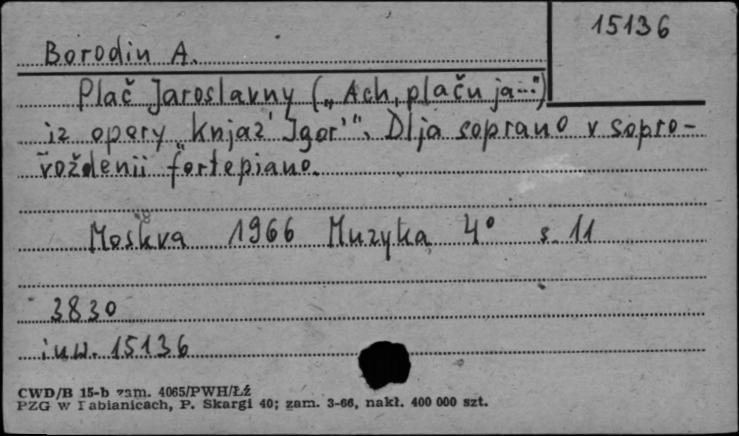 15136
Borodin A.
Plač Jaroslavny („Ach, plaču ja...")
iz opery „Knjaz' Igor'". Dlja soprano v sopro-
voždenii fortepiano.
Moskva 1966 Muzyka 4° s. 11
3830
inw. 15136
CWD/B 15-b zam. 4065/PWH/Łź
PZG w Pabianicach, P. Skargi 40; zam. 3-66, nakł. 400 000 szt.